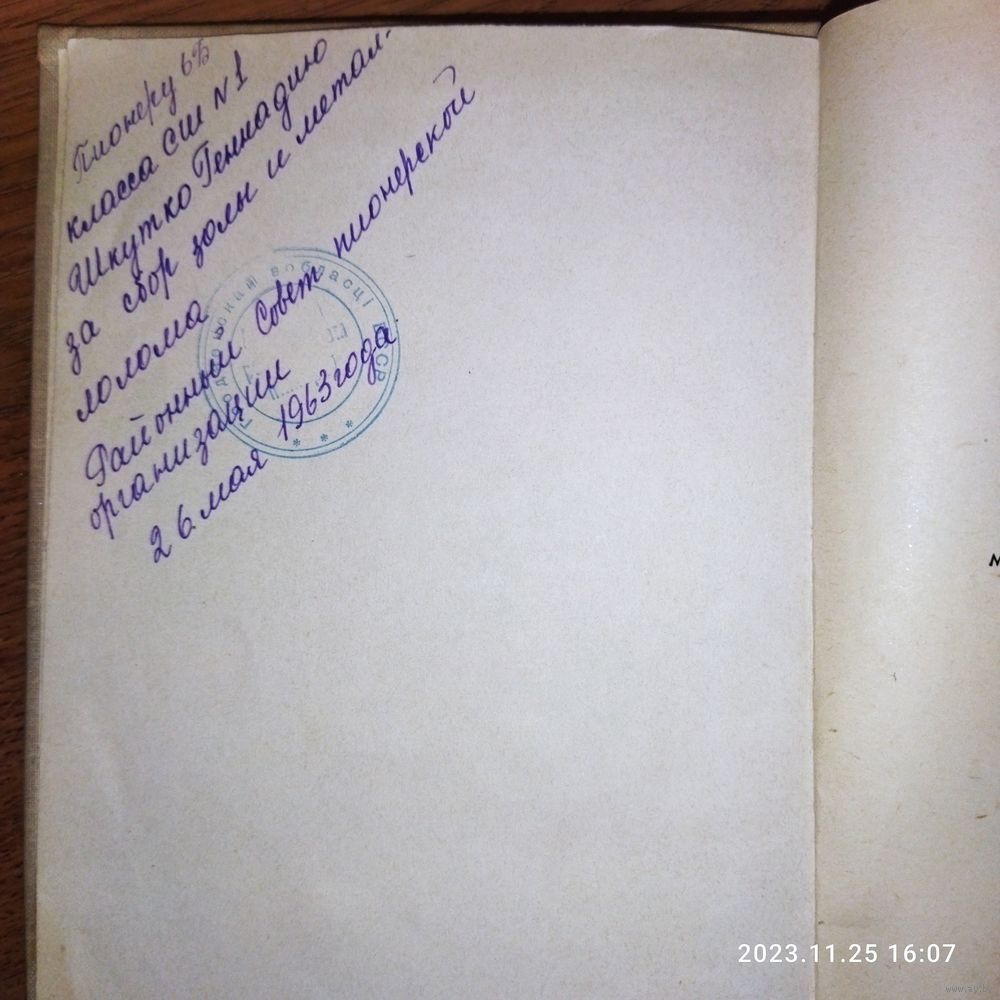 Пионеру 6Б
класса СШ N 1
Шкутко Геннадию
за сбор золы и метал-
лолома
Районный Совет пионерской
организации
26 мая 1963 года
вобласці БССР
* * *
2023.11.25 16:07
www.ay.by